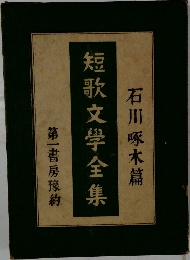 石川啄木篇
短歌文學全集
第一書房豫約